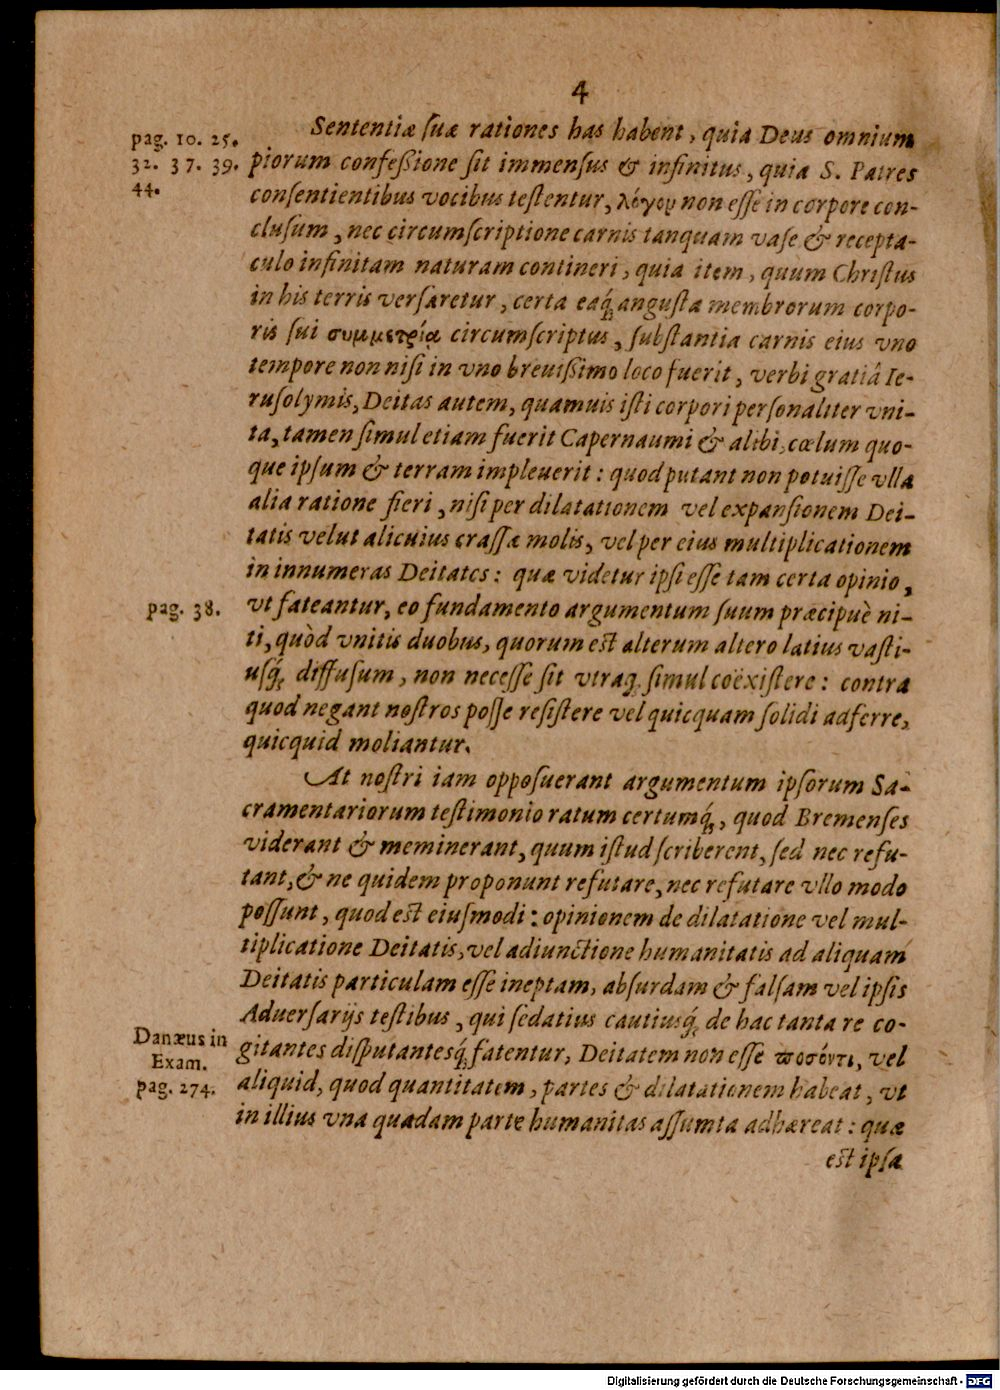 4
pag. 10. 25.
32. 37. 39.
44.
Sententiæ ſuæ rationes has habent, quia Deus omnium
piorum confeßione ſit immenſus & infinitus, quia S. Patres
conſentientibus vocibus teſtentur, λόγον non eſſe in corpore con-
cluſum, nec circumſcriptione carnis tanquam vaſe & recepta-
culo infinitam naturam contineri, quia item, quum Chriſtus
in his terris verſaretur, certa eaq́; anguſta membrorum corpo-
ris ſui συμμετρίᾳ circumſcriptus, ſubſtantia carnis eius vno
tempore non niſi in vno breuißimo loco fuerit, verbi gratiâ Ie-
ruſolymis, Deitas autem, quamuis iſti corpori perſonaliter vni-
ta, tamen ſimul etiam fuerit Capernaumi & alibi, cœlum quo-
que ipſum & terram impleuerit: quod putant non potuiſſe vlla
alia ratione fieri, niſi per dilatationem vel expanſionem Dei-
tatis velut alicuius craſſæ molis, vel per eius multiplicationem
in innumeras Deitates: quæ videtur ipſi eſſe tam certa opinio,
pag. 38.
vt fateantur, eo fundamento argumentum ſuum præcipuè ni-
ti, quòd vnitis duobus, quorum eſt alterum altero latius vaſti-
uſq́; diffuſum, non neceſſe ſit vtraq; ſimul coëxiſtere: contra
quod negant noſtros poſſe reſiſtere vel quicquam ſolidi adferre,
quicquid moliantur.
At noſtri iam oppoſuerant argumentum ipſorum Sa-
cramentariorum teſtimonio ratum certumq́;, quod Bremenſes
viderant & meminerant, quum iſtud ſcriberent, ſed nec refu-
tant, & ne quidem proponunt refutare, nec refutare vllo modo
poſſunt, quod eſt eiuſmodi: opinionem de dilatatione vel mul-
tiplicatione Deitatis, vel adiunctione humanitatis ad aliquam
Deitatis particulam eſſe ineptam, abſurdam & falſam vel ipſis
Aduerſarijs teſtibus, qui ſedatius cautiusq́; de hac tanta re co-
Danæus in
Exam.
pag. 274.
gitantes diſputantesq́; fatentur, Deitatem non eſſe ποσόντι, vel
aliquid, quod quantitatem, partes & dilatationem habeat, vt
in illius vna quadam parte humanitas aſſumta adhæreat: quæ
eſt ipſa
Digitalisierung gefördert durch die Deutsche Forschungsgemeinschaft - DFG